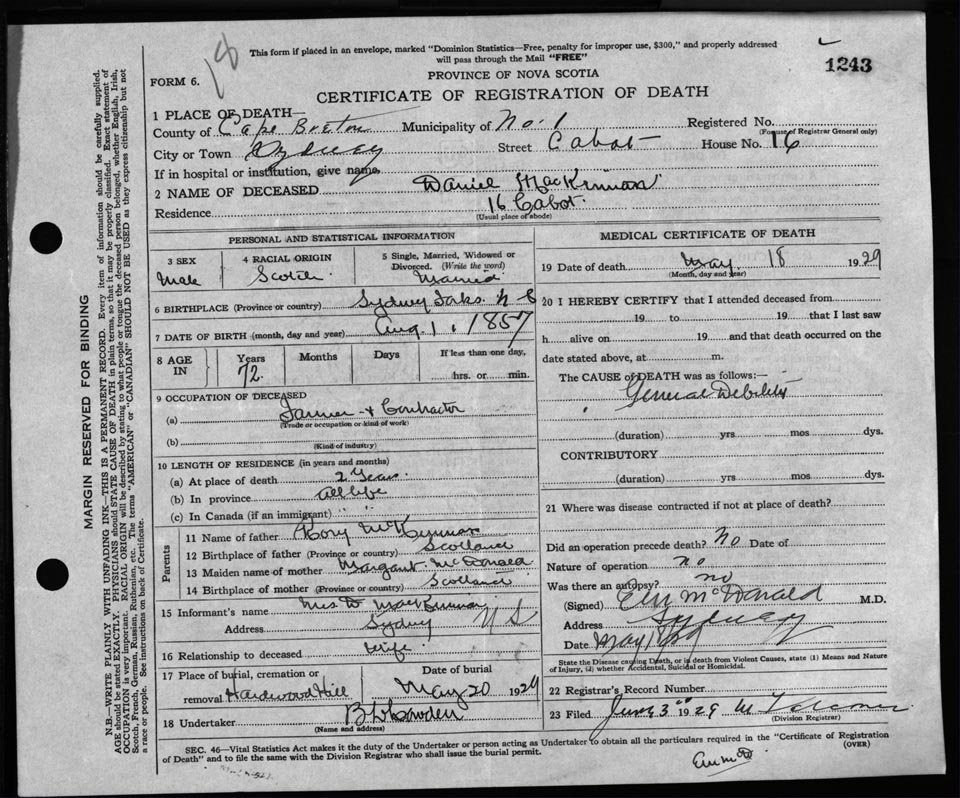 18
This form if placed in an envelope, marked "Dominion Statistics—Free, penalty for improper use, $300," and properly addressed
will pass through the Mail "FREE"
1243
FORM 6.
PROVINCE OF NOVA SCOTIA
CERTIFICATE OF REGISTRATION OF DEATH
1 PLACE OF DEATH—
County of Cape Breton Municipality of No. 1 Registered No.
(For use of Registrar General only)
City or Town Sydney Street Cabot House No. 16
If in hospital or institution, give name,
2 NAME OF DECEASED Daniel MacKinnon
Residence 16 Cabot.
(Usual place of abode)
PERSONAL AND STATISTICAL INFORMATION
3 SEX
Male
4 RACIAL ORIGIN
Scotch
5 Single, Married, Widowed or
Divorced. (Write the word)
Married
6 BIRTHPLACE (Province or country) Sydney Forks.
7 DATE OF BIRTH (month, day and year) Aug. 1. 1857
8 AGE IN
Years
72.
Months
Days
If less than one day,
hrs. or min.
9 OCCUPATION OF DECEASED
(a) Farmer & Contractor
(Trade or occupation or kind of work)
(b)
(Kind of industry)
10 LENGTH OF RESIDENCE (in years and months)
(a) At place of death 2 Years
(b) In province all life
(c) In Canada (if an immigrant) "
Parents
11 Name of father Rory McKinnon
12 Birthplace of father (Province or country) Scotland
13 Maiden name of mother Margaret McDonald
14 Birthplace of mother (Province or country) Scotland
15 Informant's name Mrs D MacKinnon
Address Sydney N S
16 Relationship to deceased wife
17 Place of burial, cremation or
removal Hardwood Hill
Date of burial
May 20 1929
18 Undertaker
(Name and address)
MEDICAL CERTIFICATE OF DEATH
19 Date of death May 18 1929
(Month, day and year)
20 I HEREBY CERTIFY that I attended deceased from
19 to 19 that I last saw
h alive on 19 and that death occurred on the
date stated above, at m.
The CAUSE of DEATH was as follows:—
General Debility
(duration) yrs mos dys.
CONTRIBUTORY
(duration) yrs mos dys.
21 Where was disease contracted if not at place of death?
Did an operation precede death? No Date of
Nature of operation no
Was there an autopsy? no
(Signed) McDonald M.D.
Address Sydney
Date May
State the Disease causing Death, or in death from Violent Causes, state (1) Means and Nature
of Injury, (2) whether Accidental, Suicidal or Homicidal.
22 Registrar's Record Number
23 Filed 1929
(Division Registrar)
SEC. 46—Vital Statistics Act makes it the duty of the Undertaker or person acting as Undertaker to obtain all the particulars required in the "Certificate of Registration
of Death" and to file the same with the Division Registrar who shall issue the burial permit.
(OVER)
MARGIN RESERVED FOR BINDING
N.B.—WRITE PLAINLY WITH UNFADING INK—THIS IS A PERMANENT RECORD. Every item of information should be carefully supplied.
AGE should be stated EXACTLY. PHYSICIANS should STATE CAUSE OF DEATH in plain terms, so that it may be properly classified. Exact statement of
OCCUPATION is very important. RACIAL ORIGIN will be described by stating to what people or tongue the deceased person belonged, whether English, Irish,
Scotch, French, German, Russian, Ruthenian, etc. The terms "AMERICAN" or "CANADIAN" SHOULD NOT BE USED as they express citizenship but not
a race or people. See instructions on back of Certificate.